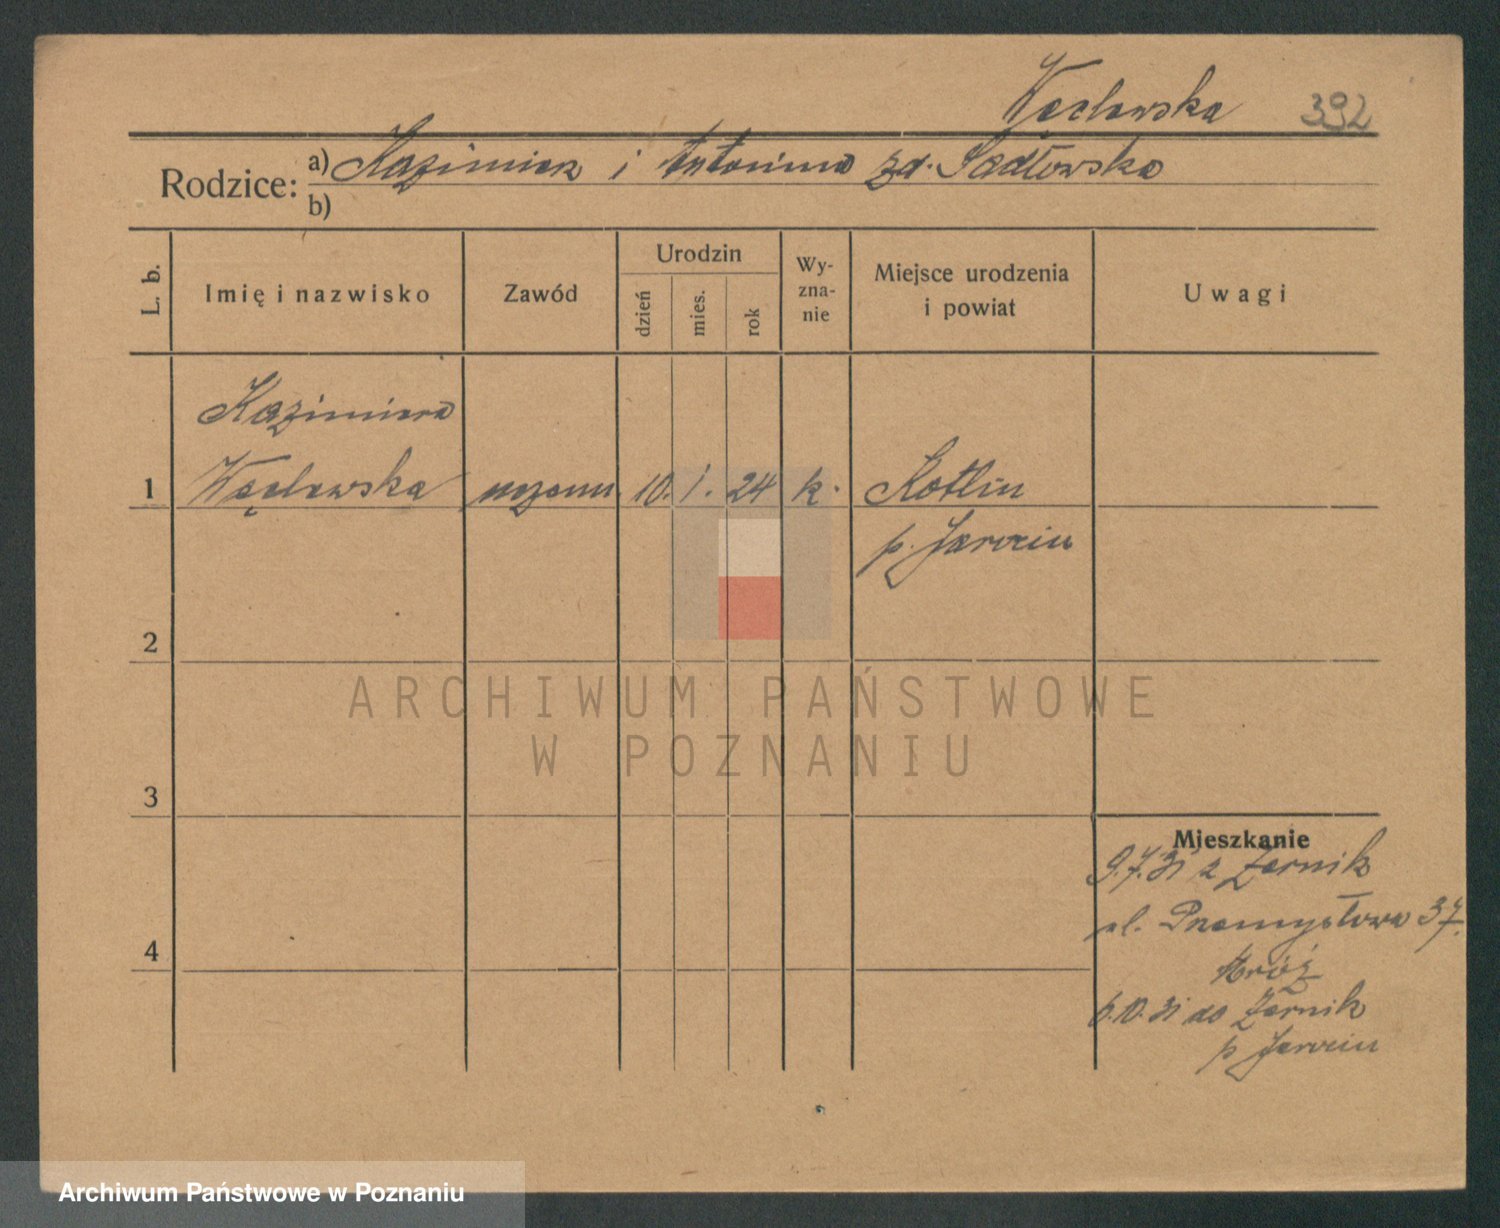 Węclewska 392
Rodzice: a) Kazimierz i Antonina zd. Sadłowska
b)
L. b.
Imię i nazwisko
Zawód
Urodzin
dzień
mies.
rok
Wy-
zna-
nie
Miejsce urodzenia
i powiat
Uwagi
Kazimiera
1 Węclewska uczenn. 10. 1. 24 k. Kotlin
p. Jarocin
2
3
4
Mieszkanie
9.7.31 z Żernik
ul. Przemysłowa 37.
Mróz
6.10.31 do Żernik
p Jarocin
ARCHIWUM PAŃSTWOWE
W POZNANIU
Archiwum Państwowe w Poznaniu